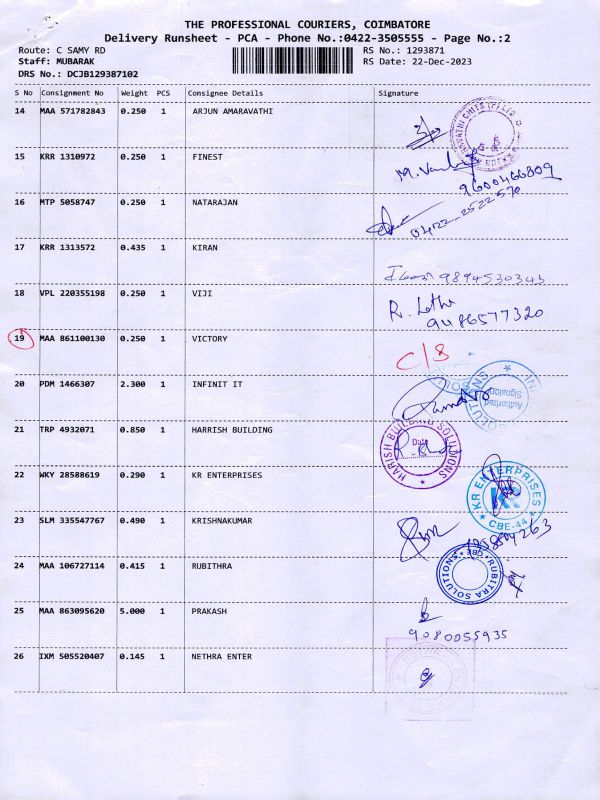 THE PROFESSIONAL COURIERS, COIMBATORE
Delivery Runsheet - PCA - Phone No.:0422-3505555 - Page No.:2
Route: C SAMY RD
RS No.: 1293871
Staff: MUBARAK
RS Date: 22-Dec-2023
DRS No.: DCJB129387102
S No Consignment No Weight PCS Consignee Details Signature
14 MAA 571782843 0.250 1 ARJUN AMARAVATHI
15 KRR 1310972 0.250 1 FINEST
9600466809
16 MTP 5058747 0.250 1 NATARAJAN
0422-2522570
17 KRR 1313572 0.435 1 KIRAN
9894530343
18 VPL 220355198 0.250 1 VIJI
R. Latha
9486577320
19 MAA 861100130 0.250 1 VICTORY
C/S
20 PDM 1466307 2.300 1 INFINIT IT
SOLUTIONS
Authorized
Signatory
21 TRP 4932071 0.850 1 HARRISH BUILDING
HARISH BUILDING SOLUTIONS
Date
22 WKY 28588619 0.290 1 KR ENTERPRISES
KR ENTERPRISES
KR
CBE-44
23 SLM 335547767 0.490 1 KRISHNAKUMAR
24 MAA 106727114 0.415 1 RUBITHRA
RUBITRA SOLUTIONS
CBE
25 MAA 863095620 5.000 1 PRAKASH
9080055935
26 IXM 505520407 0.145 1 NETHRA ENTER